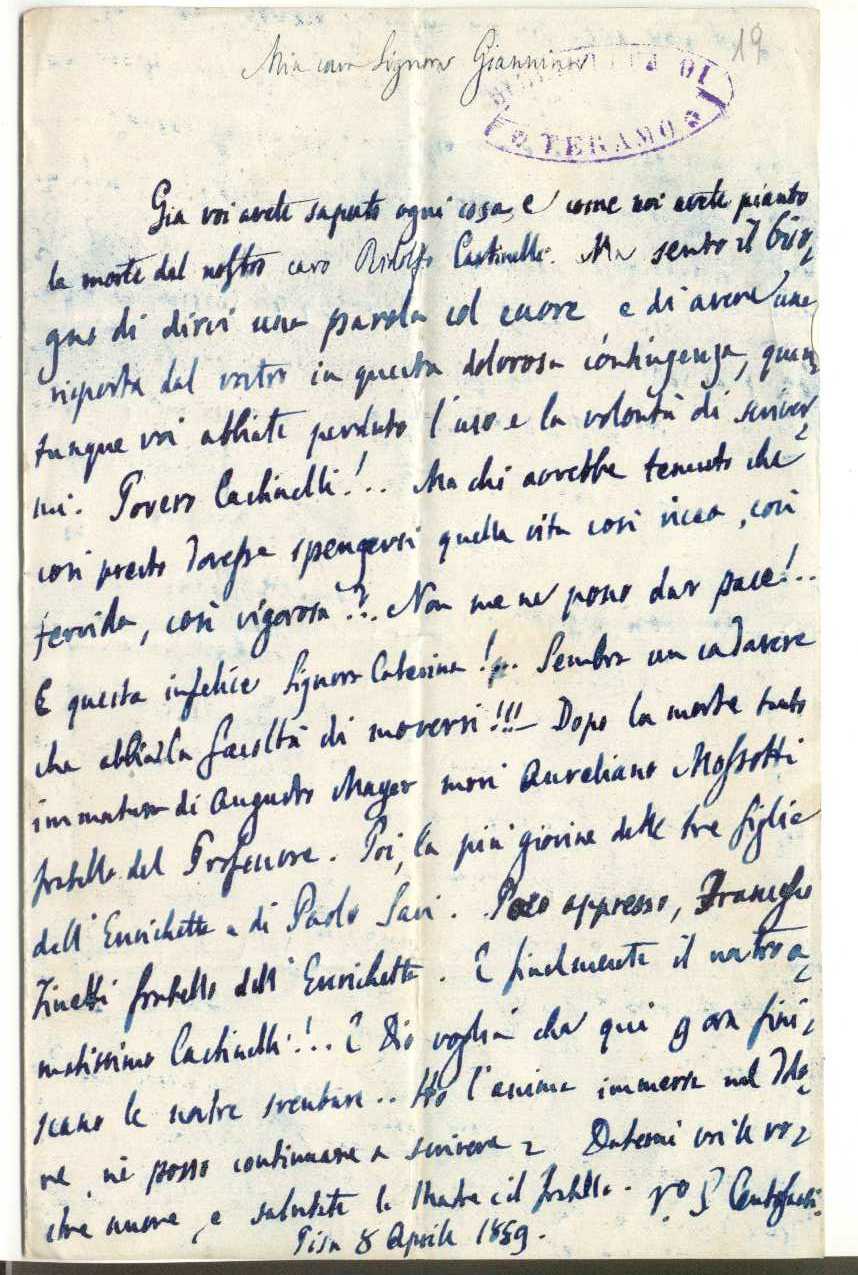 19
Mia cara Signora Giannina
DI
TERAMO
Già voi avete saputo ogni cosa, e come noi avete pianto
la morte del nostro caro Ridolfo Castinelli. Ma sento il biso,
gno di dirvi una parola col cuore e di avere una
risposta dal vostro in questa dolorosa contingenza, quan,
tunque voi abbiate perduto l'uso e la volontà di scriver,
mi. Povero Castinelli!.. Ma chi avrebbe temuto che
così presto dovesse spengersi quella vita così ricca, così
fervida, così vigorosa?!.. Non me ne posso dar pace!..
E questa infelice Signora Caterina!... Sembra un cadavere
che abbia la facoltà di moversi!!! – Dopo la morte tanto
immatura di Augusto Mayer morì Aureliano Mossotti
fratello del Professore. Poi, la più giovine delle tre figlie
dell'Enrichetta e di Paolo Savi. Poco appresso, Francesco
fratello dell'Enrichetta. E finalmente il nostro a,
matissimo Castinelli!.. E Dio voglia che qui fini,
scano le nostre sventure.. Ho l'anima immersa nel dolo,
re, nè posso continuare a scrivere. Datemi voi le vo,
stre nuove, e salutate la Madre e il fratello. Vo S Centofanti.
Pisa 8 Aprile 1859.